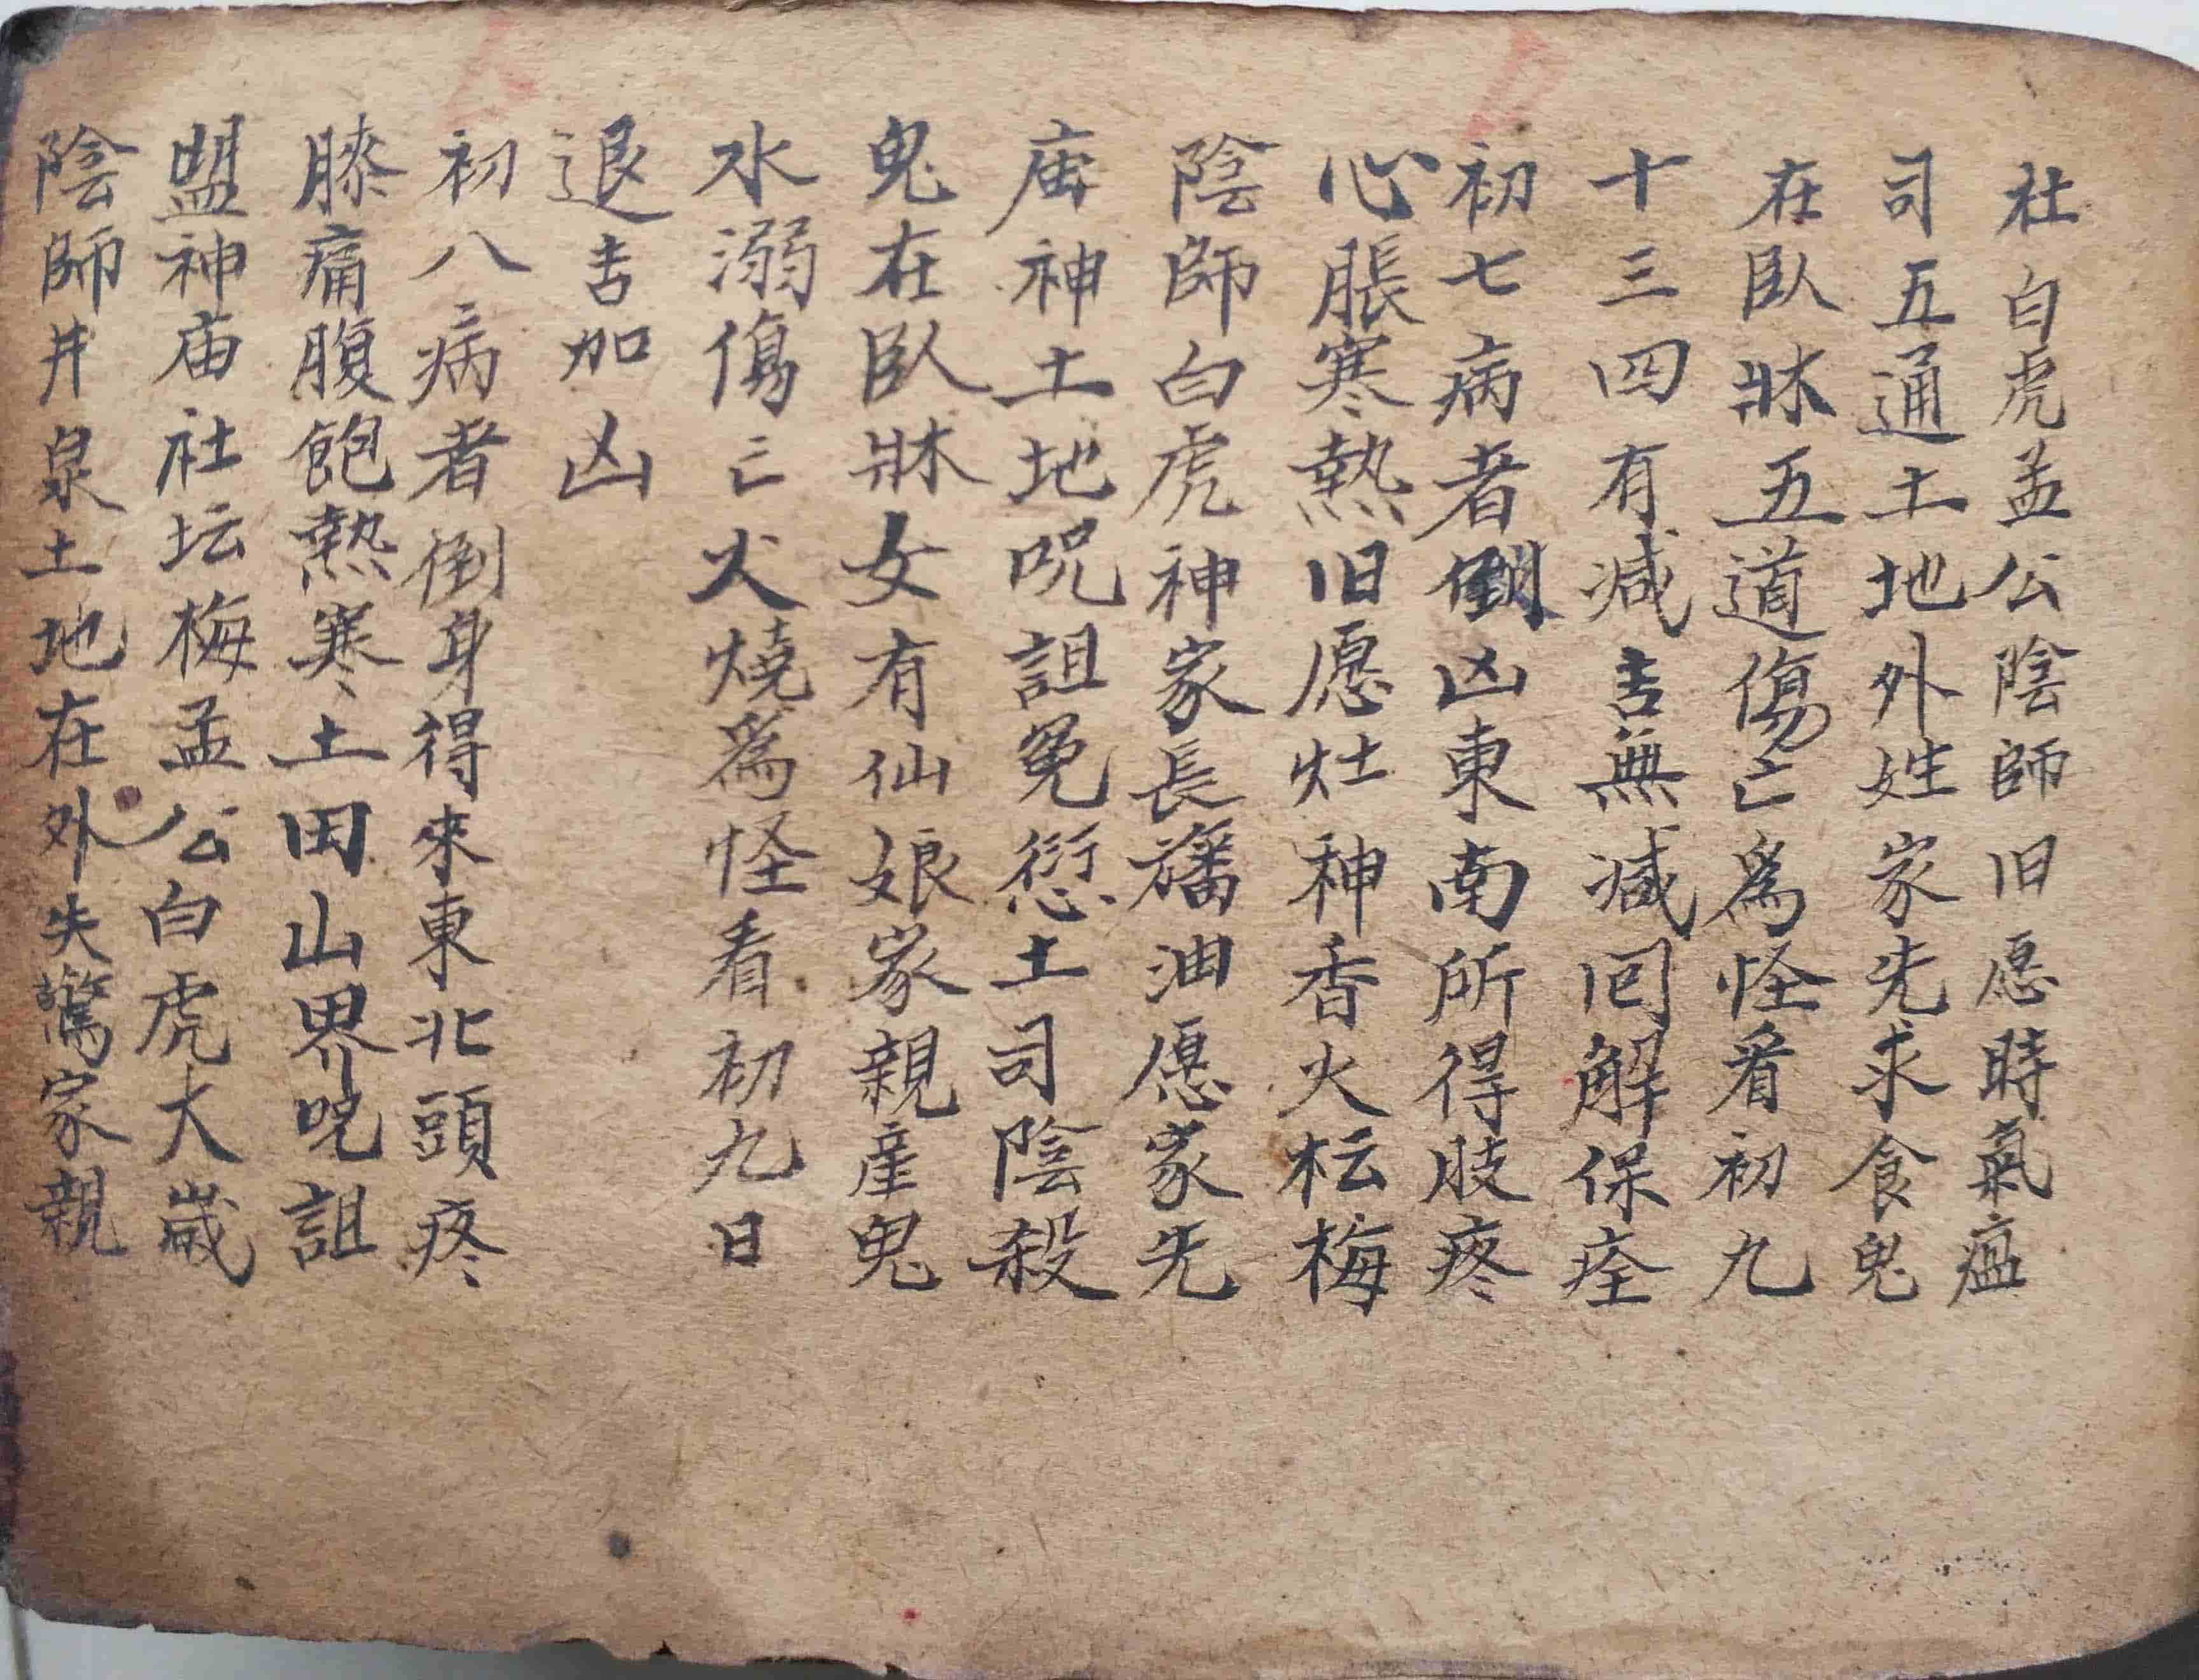 社白虎孟公陰師旧愿時氣瘟
司五通土地外姓家先求食鬼
在臥牀五道傷亡為怪看初九
十三四有减吉無减回解保痊
初七病者倒凶東南所得肢疼
心脹寒熱旧愿灶神香火枟梅
陰師白虎神家長旛油愿家先
庙神土地呪詛冤愆土司陰殺
鬼在臥牀女有仙娘家親産鬼
水溺傷亡火燒為怪看初九日
退吉加凶
初八病者倒身得來東北頭疼
膝痛腹飽熱寒土田山界呪詛
盟神庙社坛梅孟公白虎大嵗
陰師井泉土地在外失驚家親